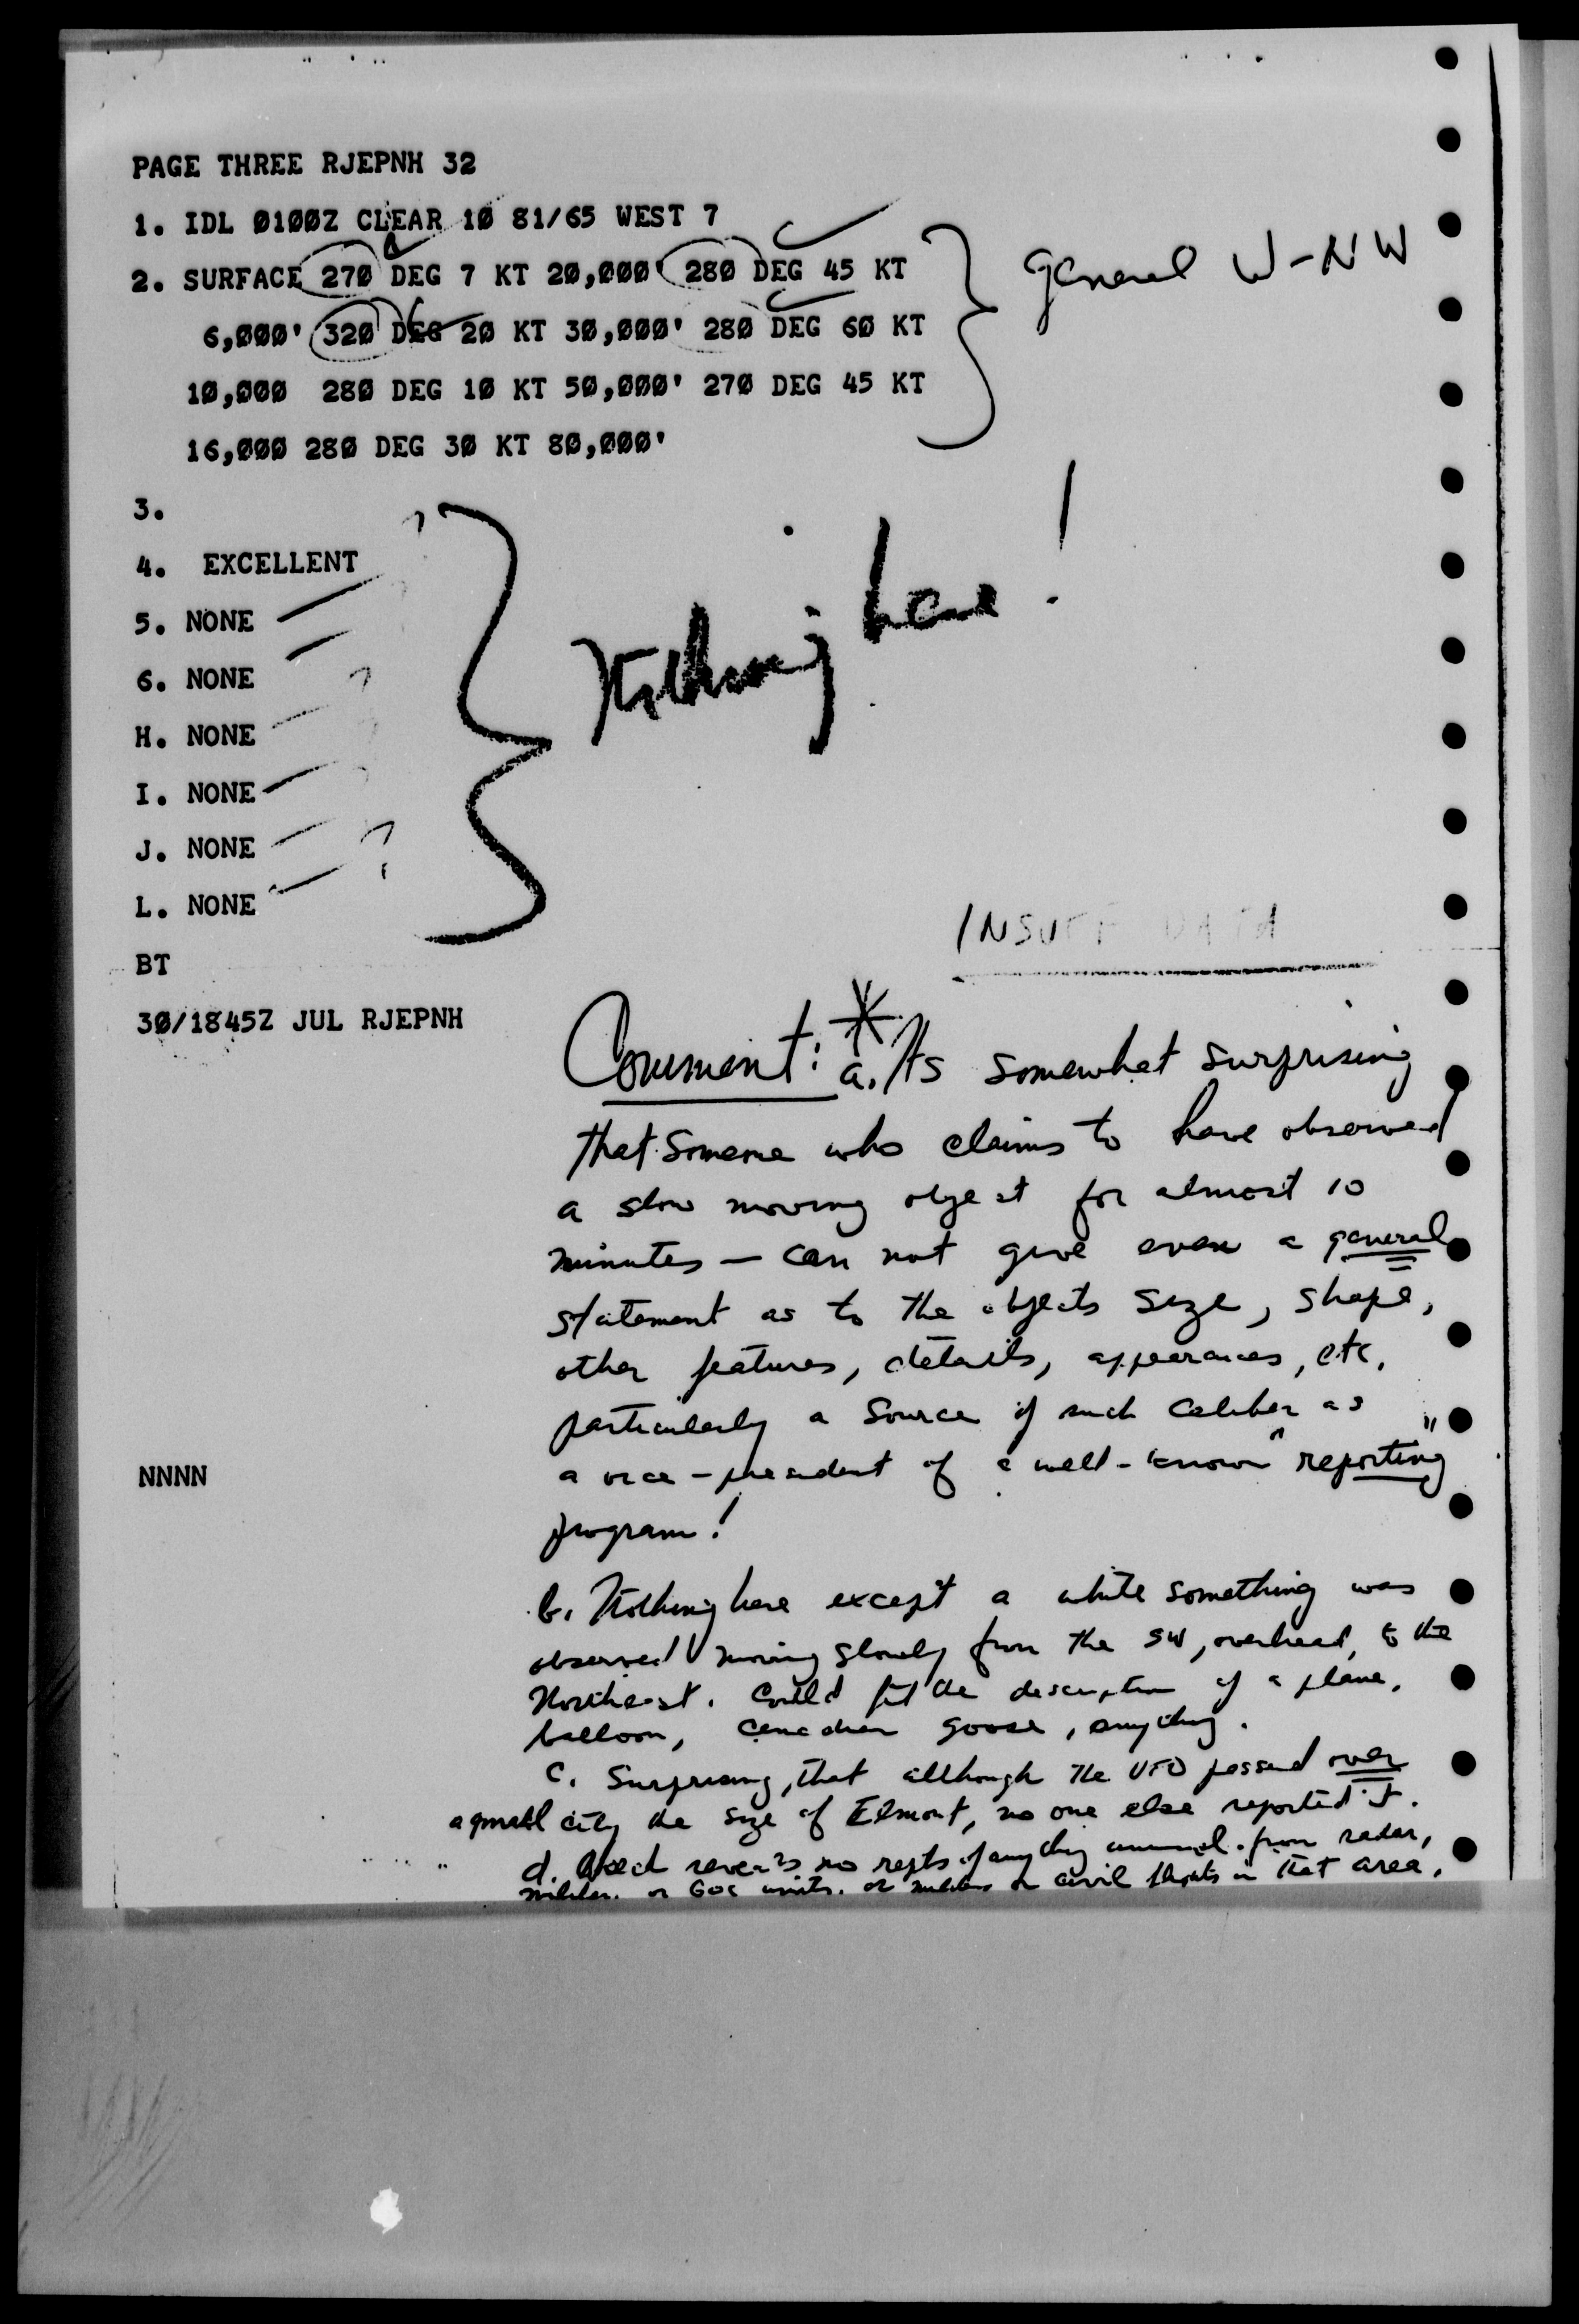 PAGE THREE RJEPNH 32
1. IDL 0100Z CLEAR 10 81/65 WEST 7
2. SURFACE 270 DEG 7 KT 20,000' 280 DEG 45 KT
general W-NW
6,000' 320 DEG 20 KT 30,000' 280 DEG 60 KT
10,000 280 DEG 10 KT 50,000' 270 DEG 45 KT
16,000 280 DEG 30 KT 80,000'
3.
4. EXCELLENT
5. NONE
6. NONE ?
Nothing here!
H. NONE
I. NONE
J. NONE ?
L. NONE
INSUFF DATA
BT
30/1845Z JUL RJEPNH
Comment: * a. Its somewhat surprising
that someone who claims to have observed
a slow moving object for almost 10
minutes — can not give even a general
statement as to the objects size, shape,
other features, details, appearances, etc.
particularly a source of such caliber as
a vice-president of a well-known "reporting"
NNNN
program!
b. Nothing here except a white something was
observed moving slowly from the SW, overhead, to the
Northeast. Could fit the description of a plane,
balloon, canadian goose, anything.
c. Surprising, that although the UFO passed over
a small city the size of Elmont, no one else reported it.
d. Check reveals no repts of anything unusual from radar,
or GOC units, or or civil flights in that area.